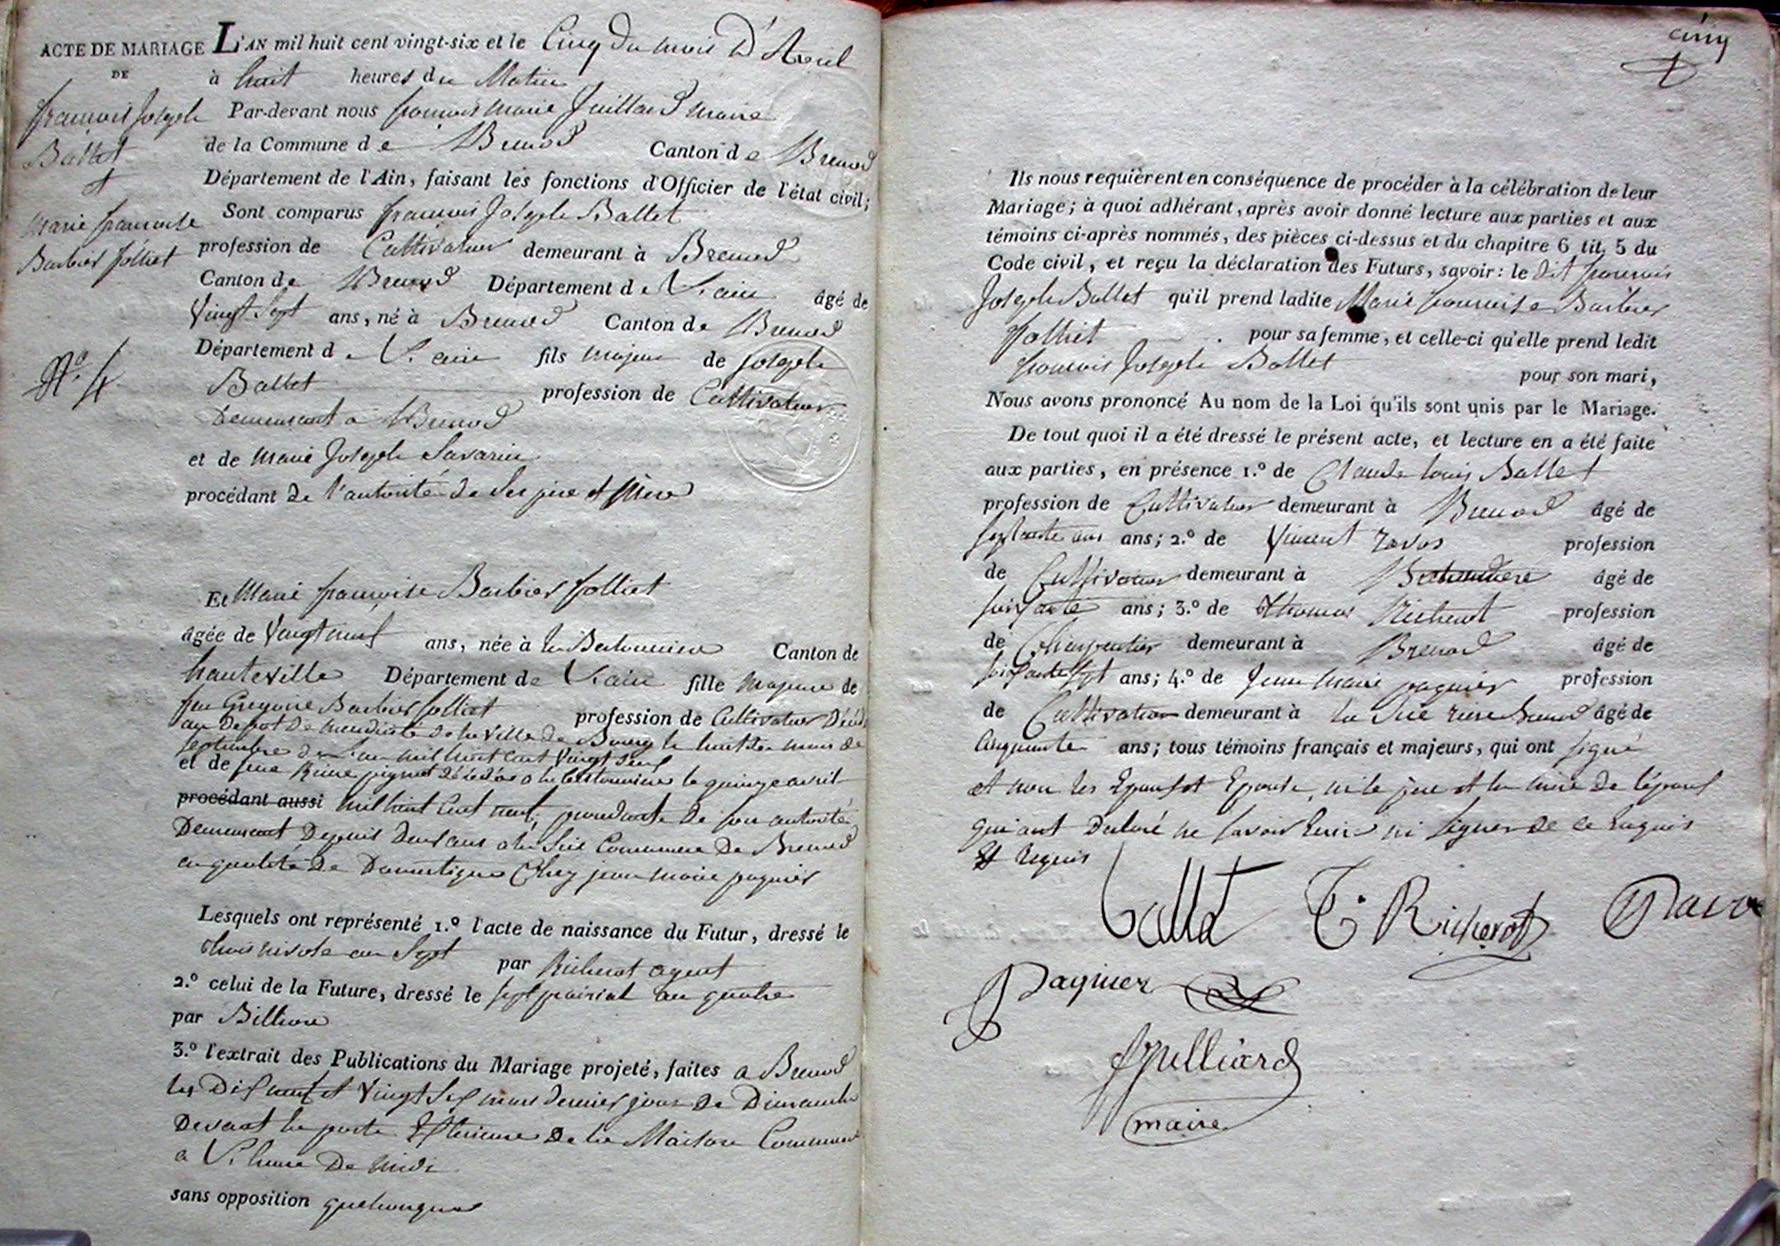 ACTE DE MARIAGE
DE
françois Joseph
Ballet
et
Marie françoise
Barbier Jolliet
N.º 4
L'AN mil huit cent vingt-six et le Cinq du mois D'Avril
à huit heures du Matin
Par-devant nous françois Marie Juillard Maire
de la Commune de Brenod Canton de Brenod
Département de l'Ain, faisant les fonctions d'Officier de l'état civil;
Sont comparus françois Joseph Ballet
profession de Cultivateur demeurant à Brenod
Canton de Brenod Département de L'ain âgé de
Vingt Sept ans, né à Brenod Canton de Brenod
Département de L'ain fils majeur de Joseph
Ballet profession de Cultivateur
Demeurant à Brenod
et de Marie Joseph Savarin
procédant de l'autorité de Ses père et Mère
Et Marie françoise Barbier Jolliet
âgée de Vingt neuf ans, née à la Canton de
hauteville Département de L'ain fille Majeure de
feu Gregoire Barbier Jolliet profession de Cultivateur Décédé
au depot de mendicité de la ville de Bourg le huit du mois de
septembre de l'an mil huit cent Vingt
et de feue décédée a la le quinze avril
procédant aussi mil huit Cent neuf, procédante de son autorité
Demeurant Depuis Deux ans a la Commune de Brenod
en qualité de Domestique Chez jean marie paquier
Lesquels ont représenté 1.º l'acte de naissance du Futur, dressé le
trois nivose an Sept par Richerot agent
2.º celui de la Future, dressé le Sept prairial an quatre
par Billion
3.º l'extrait des Publications du Mariage projeté, faites a Brenod
les Dix neuf et Vingt Six mars dernier jour de Dimanche
Devant la porte Exterieure de la Maison Commune
a L'heure De Midi
sans opposition quelconque
cinq
Ils nous requièrent en conséquence de procéder à la célébration de leur
Mariage; à quoi adhérant, après avoir donné lecture aux parties et aux
témoins ci-après nommés, des pièces ci-dessus et du chapitre 6 tit. 5 du
Code civil, et reçu la déclaration des Futurs, savoir: le dit françois
Joseph Ballet qu'il prend ladite Marie françoise Barbier
Jolliet pour sa femme, et celle-ci qu'elle prend ledit
françois Joseph Ballet pour son mari,
Nous avons prononcé Au nom de la Loi qu'ils sont unis par le Mariage.
De tout quoi il a été dressé le présent acte, et lecture en a été faite
aux parties, en présence 1.º de Claude louis Ballet
profession de Cultivateur demeurant à Brenod âgé de
septante ans ans; 2.º de Vincent profession
de Cultivateur demeurant à âgé de
soixante ans; 3.º de Thomas Richerot profession
de Charpentier demeurant à Brenod âgé de
soixante sept ans; 4.º de Jean Marie paquier profession
de Cultivateur demeurant à la Brenod âgé de
Cinquante ans; tous témoins français et majeurs, qui ont signé
et non les Epoux et Epouse, ni le père et la mère de l'époux
qui ont Declaré ne savoir Ecrire ni signer de ce enquis
et requis
Ballet T. Richerot
Paquier
Julliard
maire